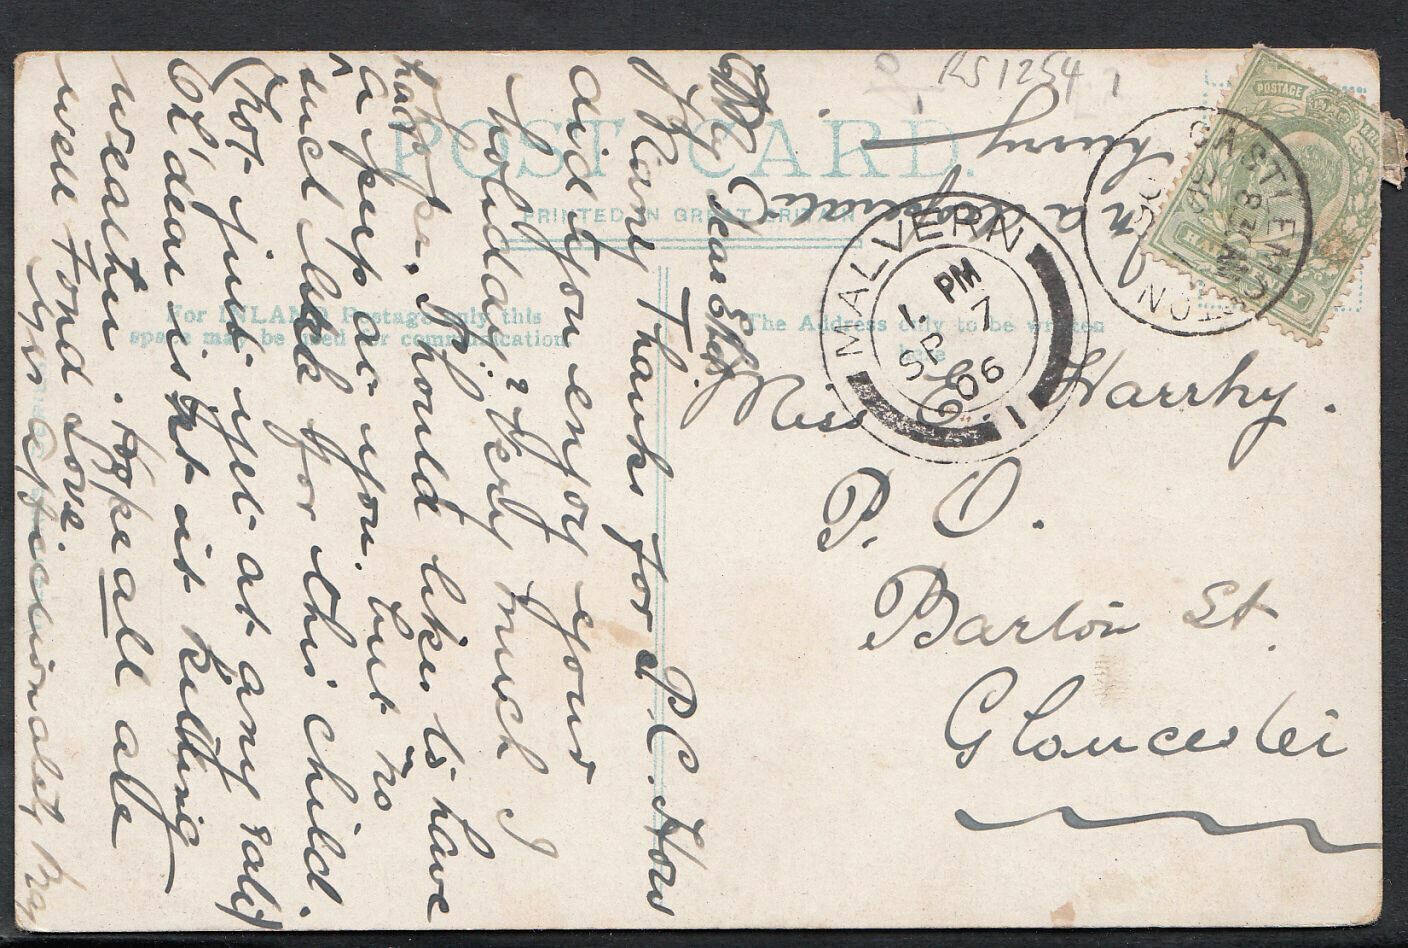 RS1254
POST CARD.
PRINTED IN GREAT BRITAIN
For INLAND Postage only this
space may be used for communication.
The Address only to be written
here
POSTAGE
MALVERN
1. PM
SP 7
06
1
CASTLEMORTON
8 30 AM
SP 7
06
Miss E. Harrhy.
P. O.
Barton St.
Gloucester
In a desperate
hurry
My dear
Many Thanks for P.C. How
did you enjoy your
holiday? Very much I
hope. Should like to have
a peep at you. but no
such luck for this child.
(Not just yet at any rate)
Oh' dear isnt it killing
weather. Hope all are
well Fond Love
Yrs affectionately May